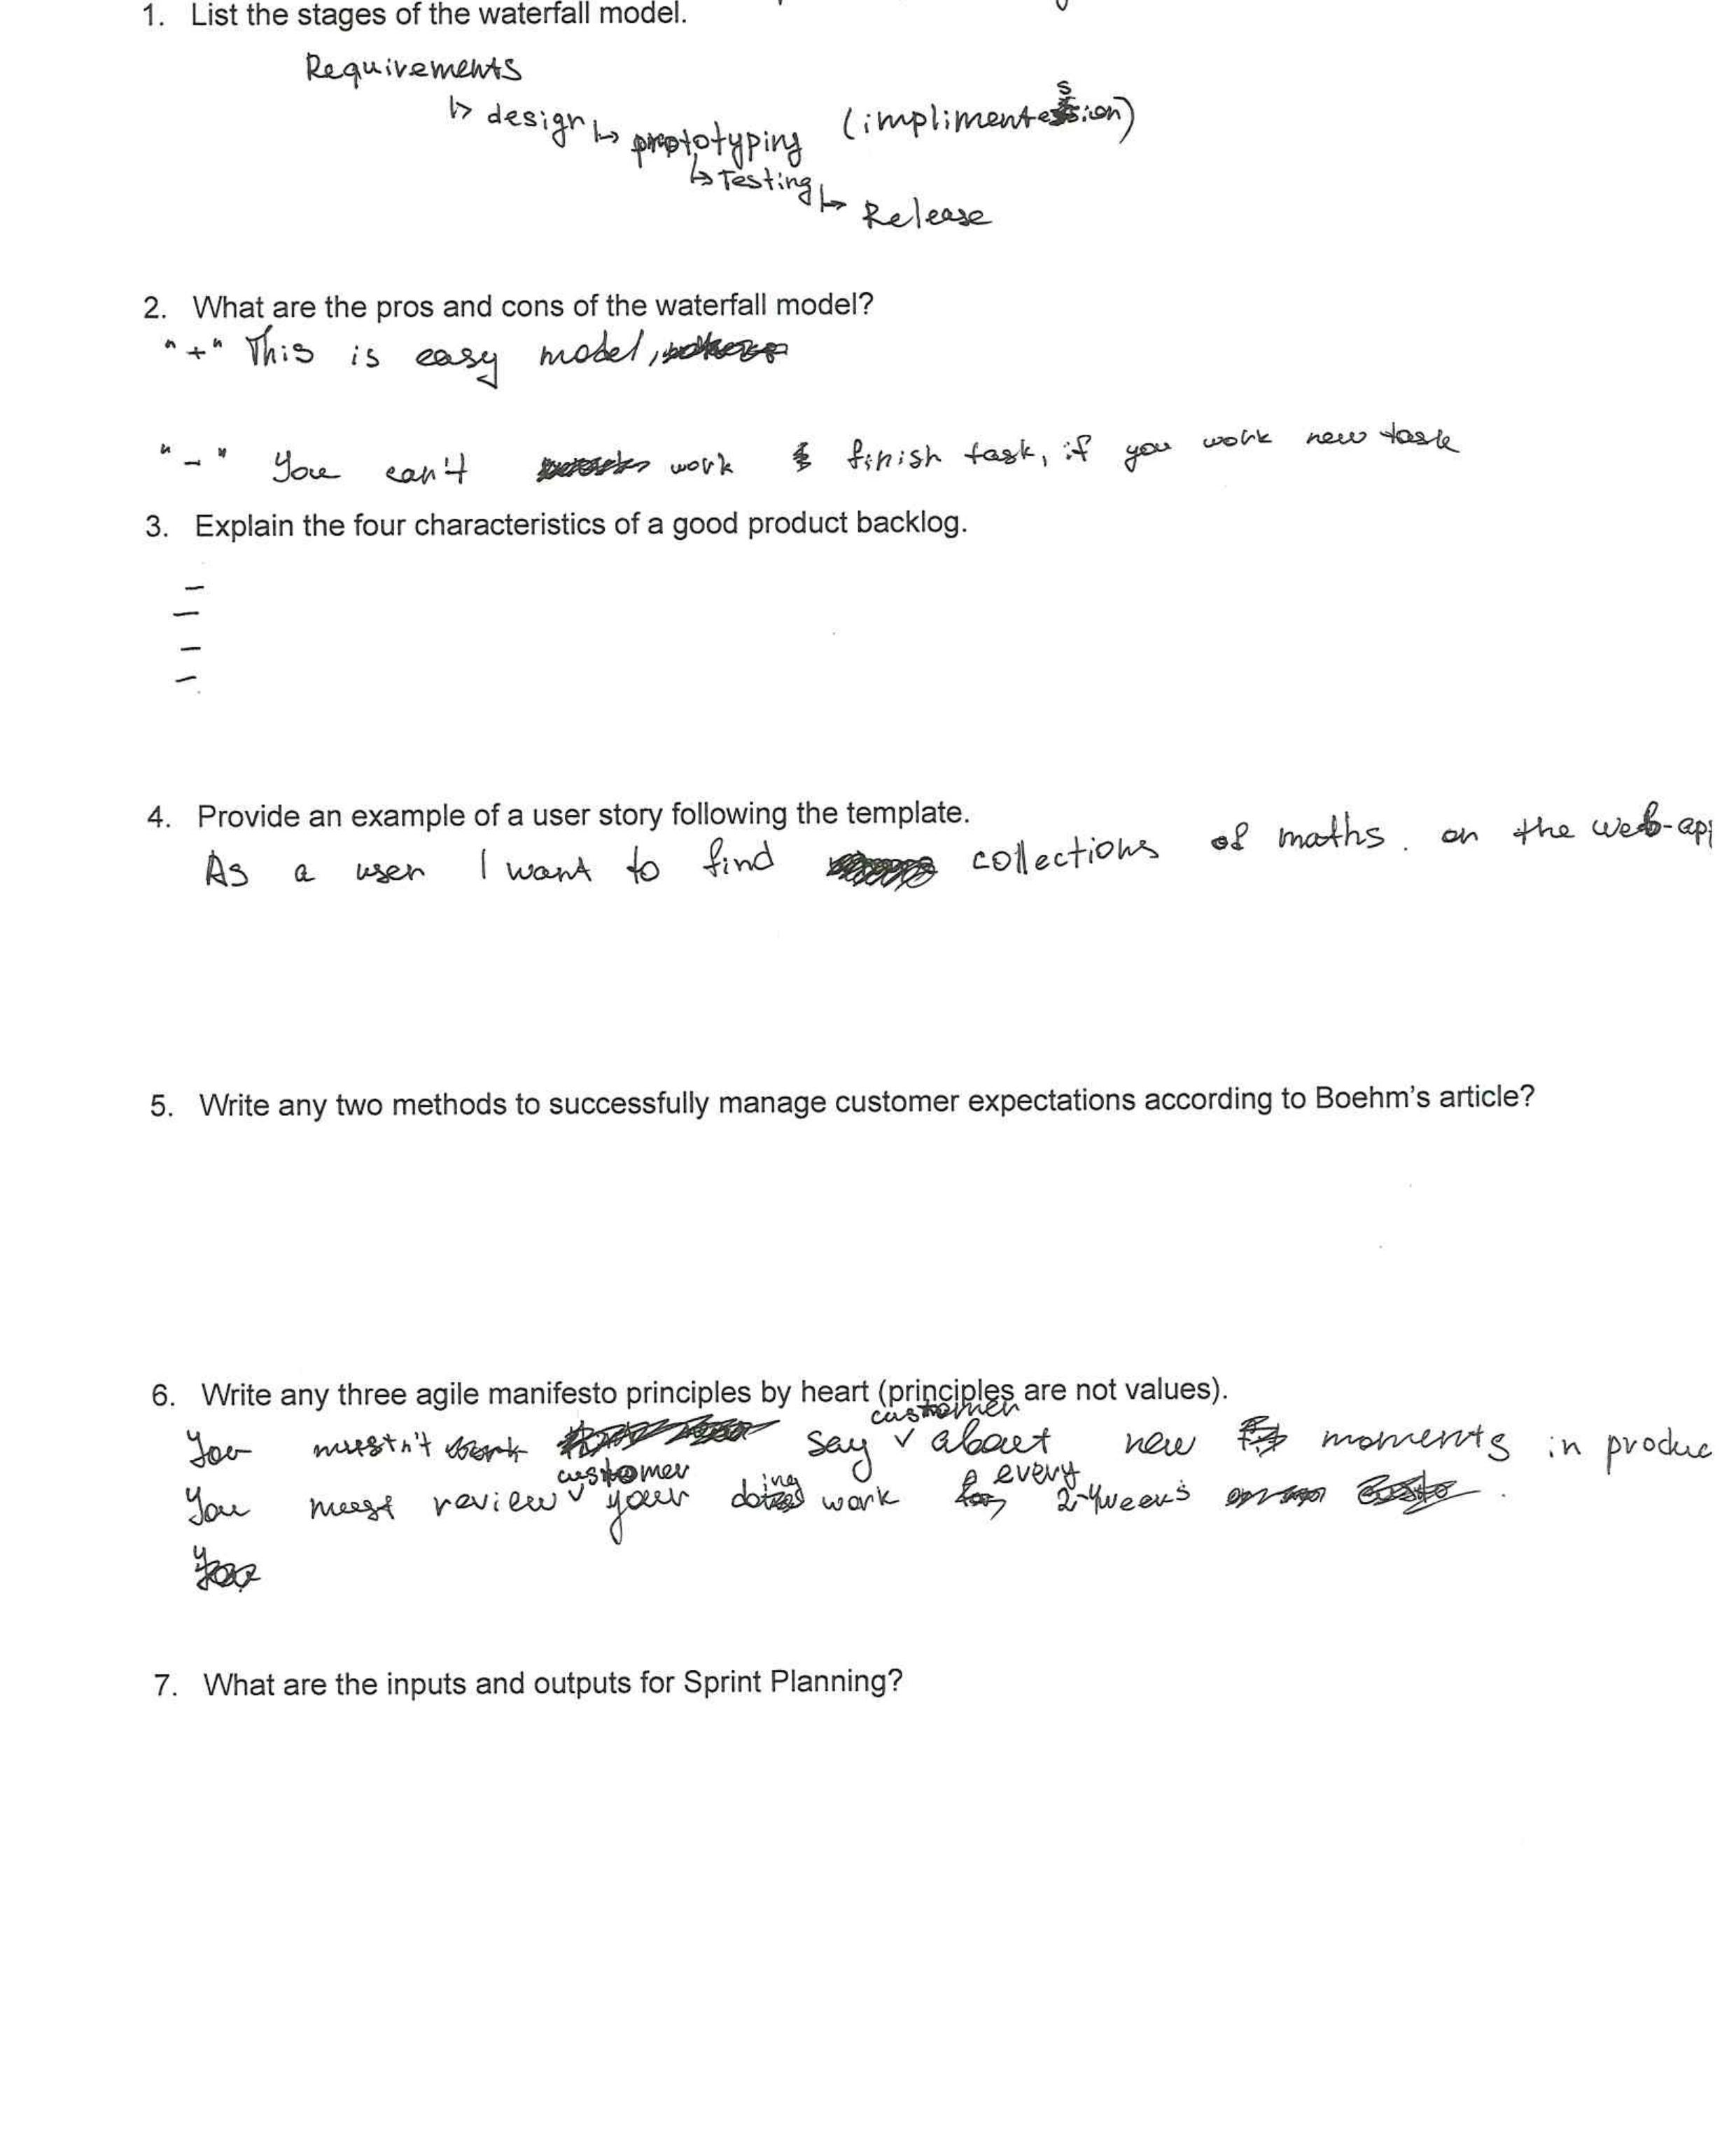 1. List the stages of the waterfall model.
Requirements
↳ design ↳ prototyping (implimentession)
↳ Testing ↳ Release
2. What are the pros and cons of the waterfall model?
"+" This is easy model,
"-" You can't work finish task, if you work new task
3. Explain the four characteristics of a good product backlog.
-
-
-
-
4. Provide an example of a user story following the template.
As a user I want to find collections of maths. on the web-ap
5. Write any two methods to successfully manage customer expectations according to Boehm's article?
6. Write any three agile manifesto principles by heart (principles are not values).
customer
You mustn't say ˅ about new moments in produc
customer every
You must review ˅ your doing work 2-4weeks .
7. What are the inputs and outputs for Sprint Planning?